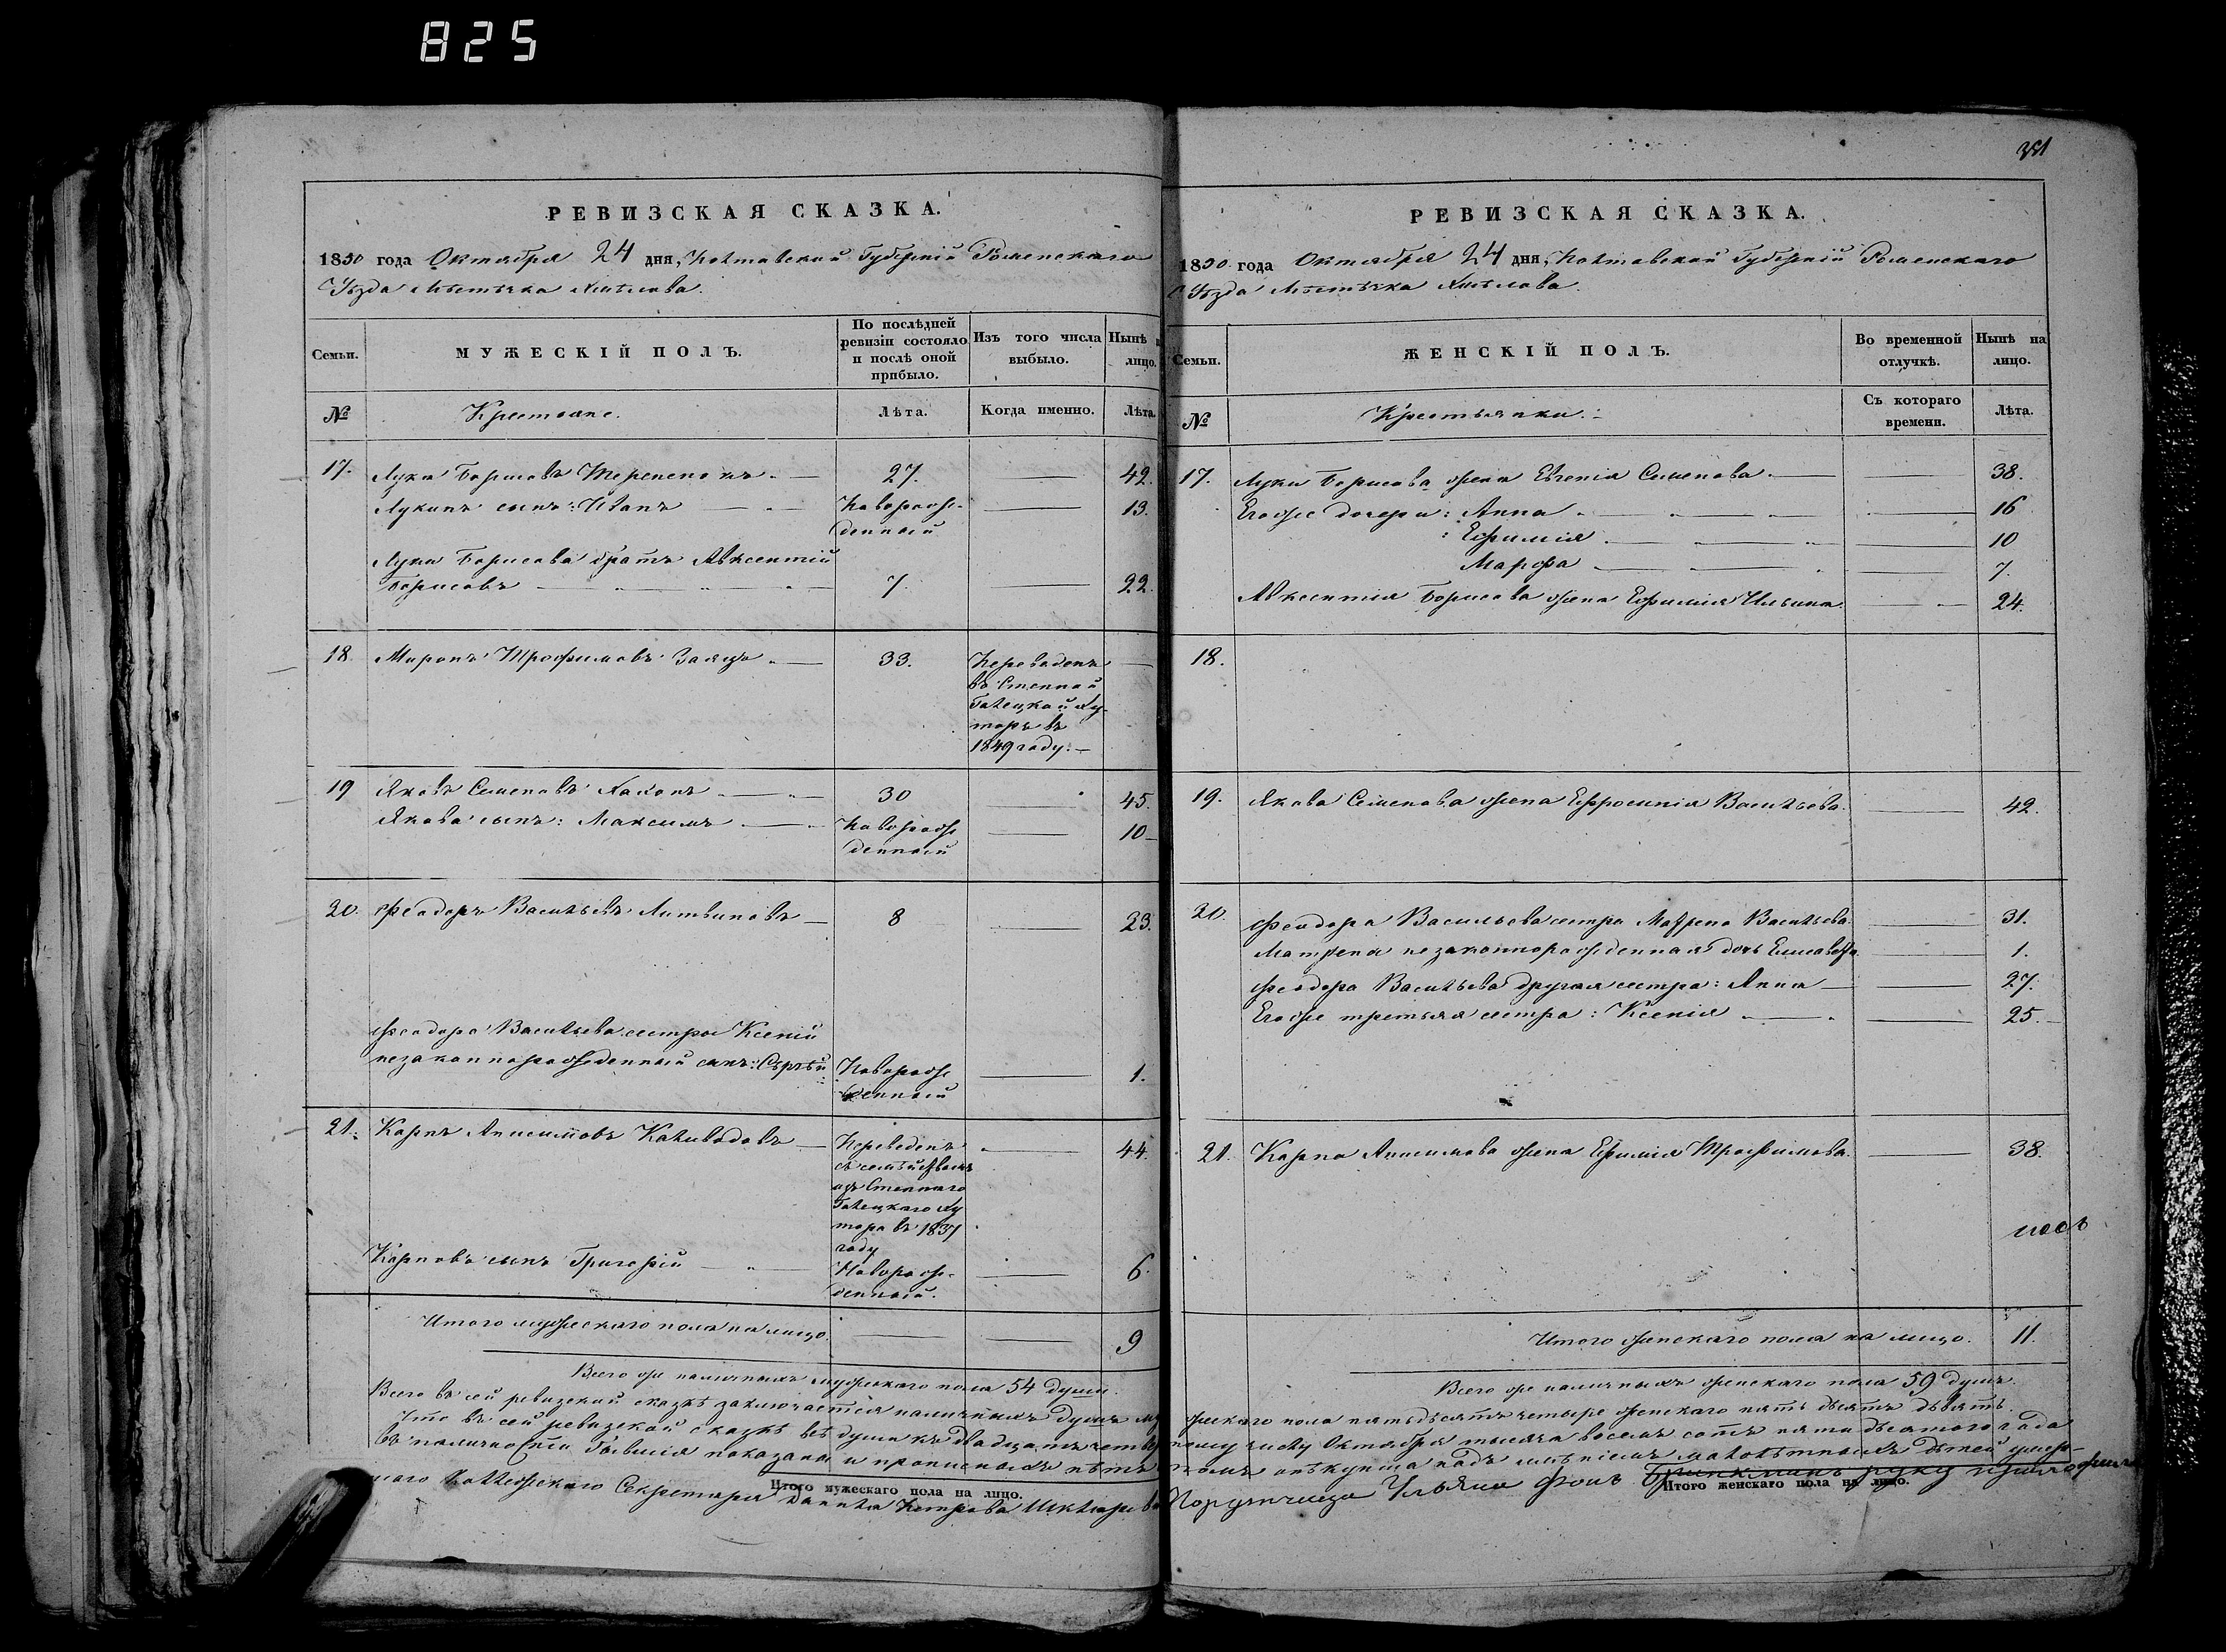 825
351
РЕВИЗСКАЯ СКАЗКА.
1850 года Октября 24 дня, Полтавской Губерніи Роменскаго
Уѣзда Мѣстѣчка Хмѣлова.
Семьи.
МУЖЕСКІЙ ПОЛЪ.
По послѣдней
ревизіи состояло
и послѣ оной
прибыло.
Изъ того числа
выбыло.
Нынѣ н
лицо.
№
Крестьяне.
Лѣта.
Когда именно.
Лѣта.
17. Луки Борисовъ 27. 42.
Лукинъ сынъ: Иванъ Новорож- 13.
денный
Луки Борисова братъ Авксентій
Борисовъ 7. 22.
18. Миронъ Трофимовъ Заяцъ 33. Переведенъ
въ Степной
Гадецкой ху-
торъ въ
1849 году.
19 Яковъ Семеновъ 30 45.
Якова сынъ: Максимъ Новорож 10
денный
20. Феодоръ Васильевъ Литвиновъ 8 23.
Феодора Васильева сестры Ксеніи
незаконнорожденный сынъ: Сергѣй Новорож 1.
денный
21. Карпъ Анисимовъ Каливодовъ Переведенъ 44.
съ семействомъ
изъ Степнаго
Гадецкаго ху
тора въ 1837
году
Карповъ сынъ Григорій Новорож- 6.
денный.
Итого мужескаго пола на лицо. 9
Всего же наличныхъ мужескаго пола 54 души.
Итого мужескаго пола на лицо.
РЕВИЗСКАЯ СКАЗКА.
1850 года Октября 24 дня, Полтавской Губерніи Роменскаго
Уѣзда Мѣстѣчка Хмѣлова.
Семьи.
ЖЕНСКІЙ ПОЛЪ.
Во временной
отлучкѣ.
Нынѣ на
лицо.
№
Крестьянки.
Съ котораго
времени.
Лѣта.
17. Луки Борисова жена Евгенія Семенова 38.
Егоже дочери: Анна 16
Ефимія 10
Марфа 7.
Авксентія Борисова жена Ефимія Ильина 24.
18.
19. Якова Семенова жена Ефросинія Васильева. 42.
20. Феодора Васильева сестра Матрена Васильева 31.
Матрены незаконнорожденная дочь Елисавета 1.
Феодора Васильева другая сестра: Анна 27.
Егоже третья сестра: Ксенія 25.
21. Карпа Анисимова жена Ефимія Трофимова. 38.
Итого женскаго пола на лицо. 11.
Всего же наличныхъ женскаго пола 59 душъ.
Всего въ сей ревизской сказкѣ заключается наличныхъ душъ мужескаго пола пятьдѣсятъ четыре женскаго пять дѣсятъ дѣвять.
Что въ сей ревизской сказкѣ всѣ души къ двадцать четвертому числу Октября тысяча восемь сотъ пятидѣсятого года
въ наличности бывшія показаны и прописныхъ нѣтъ въ томъ опѣкунша надъ имѣніемъ малолѣтныхъ дѣтей умер-
шаго Коллежскаго Секретаря Данила Петрова Порутчица Ульяна фонъ Бринкманъ руку приложила
Итого женскаго пола на лицо.